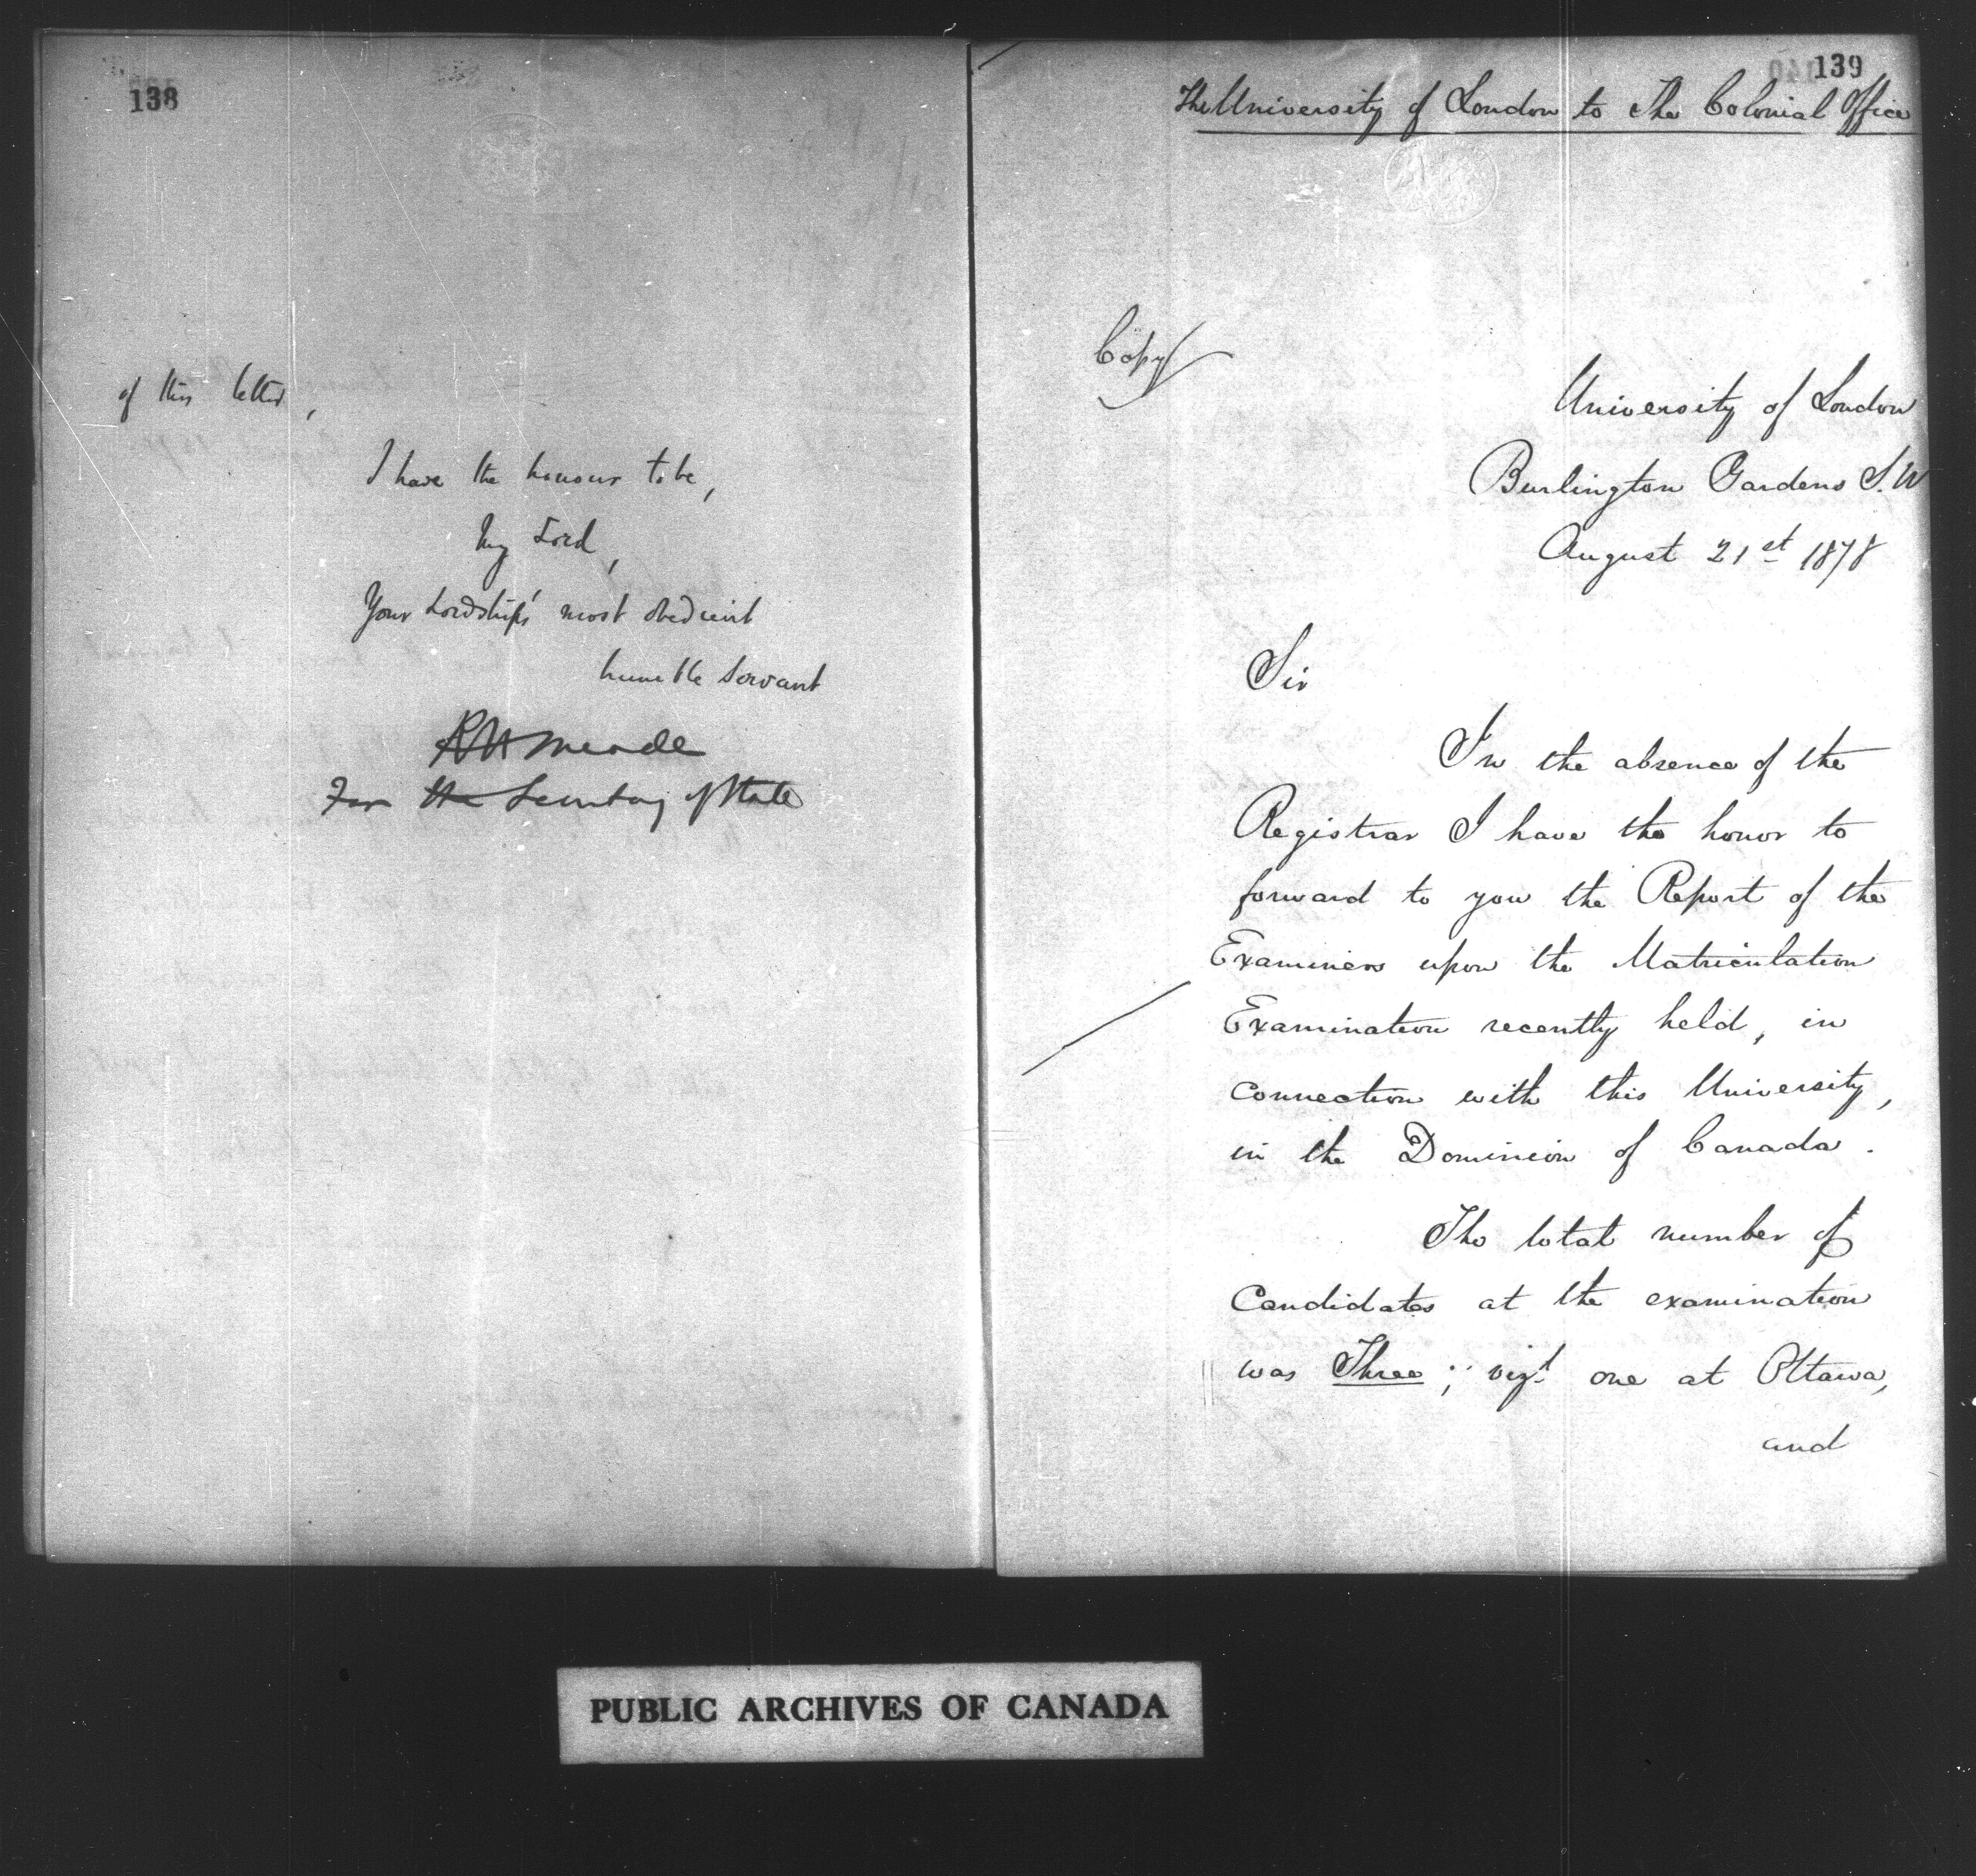 138
of this letter,
I have the honour to be,
My Lord,
Your Lordship's most obedient
humble Servant
RHMeade
For the Secretary of State
139
The University of London to The Colonial Office
Copy
University of London
Burlington Gardens S.W
August 21st 1878
Sir
In the absence of the
Registrar I have the honor to
forward to you the Report of the
Examiners upon the Matriculation
Examination recently held, in
connection with this University,
in the Dominion of Canada.
The total number of
Candidates at the examination
was Three; vizt. one at Ottawa,
and
PUBLIC ARCHIVES OF CANADA